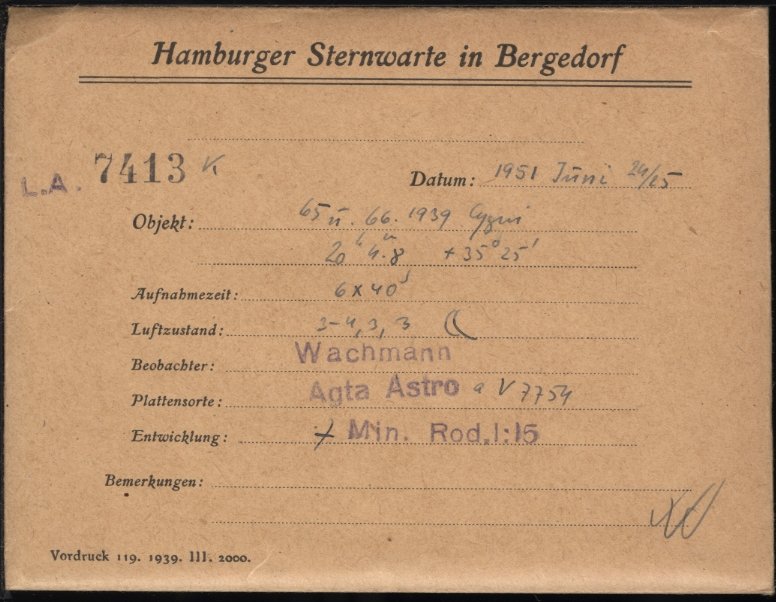 Hamburger Sternwarte in Bergedorf
L.A. 7413 K
Datum: 1951 Juni 24/25
Objekt: 65 u. 66. 1939 Cygni
20ʰ 4.8 +35° 25'
Aufnahmezeit: 6x40
Luftzustand: 3-4, 3, 3
Beobachter: Wachmann
Plattensorte: Agfa Astro a V 7754
Entwicklung: 7 Min. Rod. 1:15
Bemerkungen:
Vordruck 119. 1939. III. 2000.